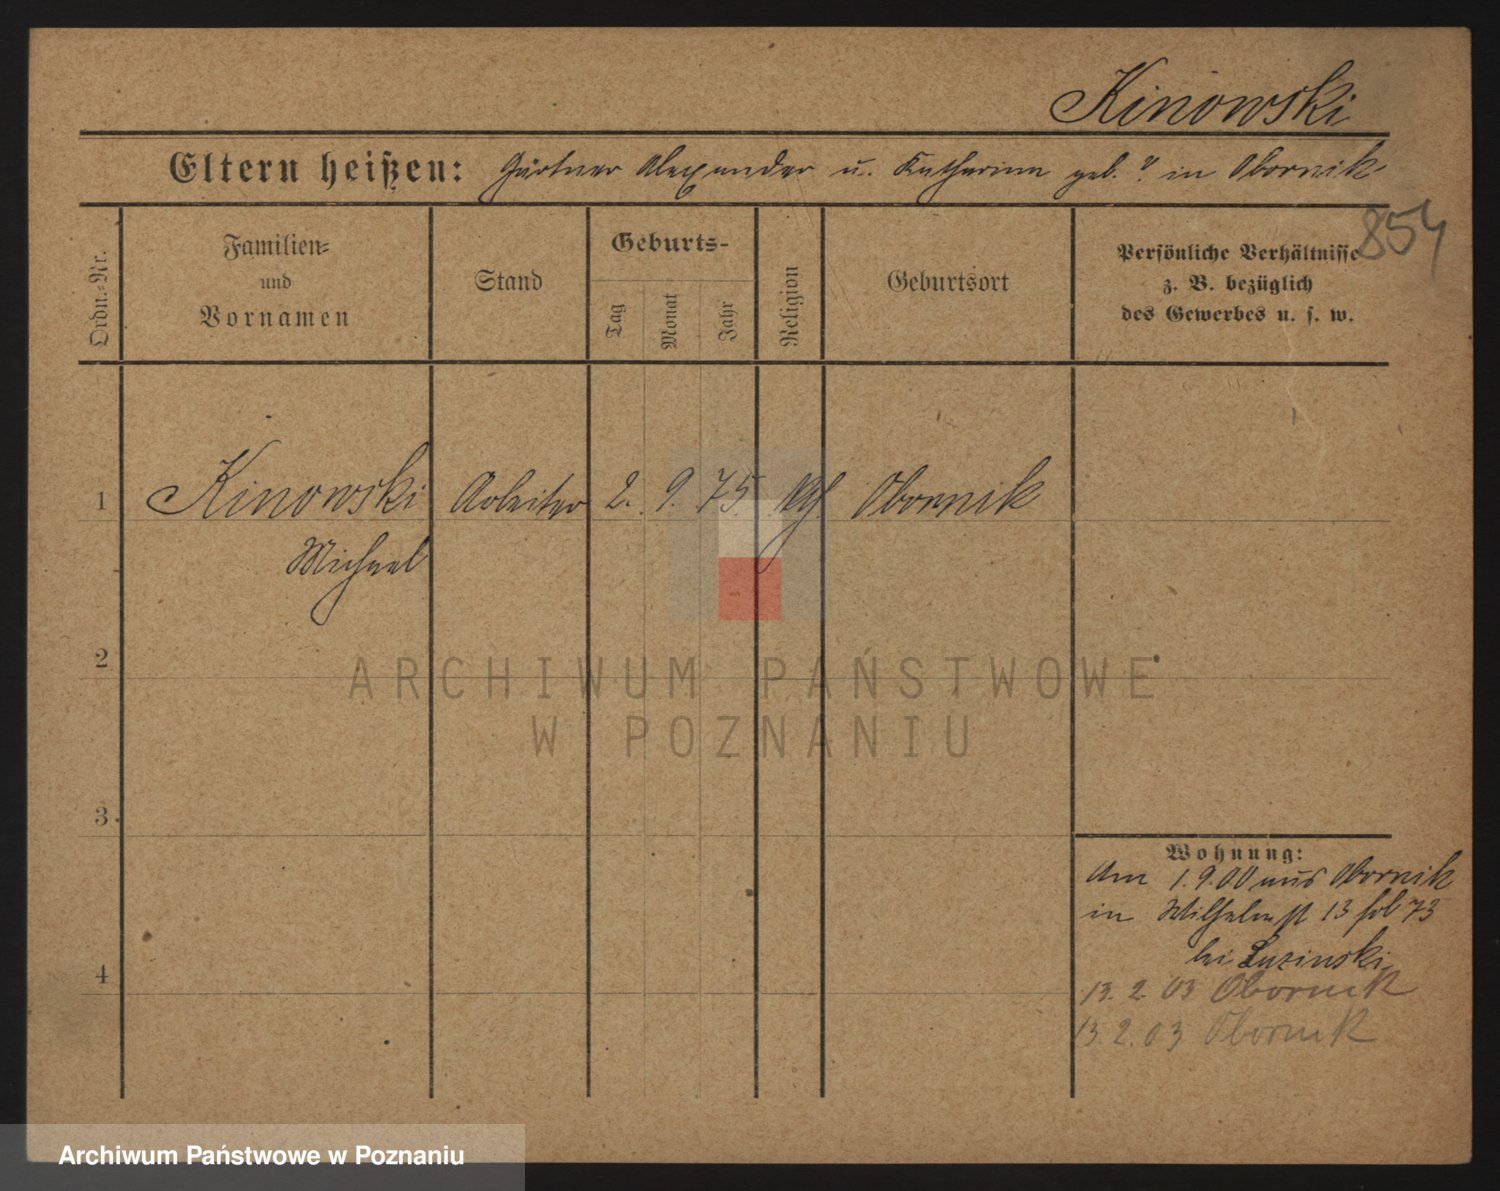 Kinowski
Eltern heißen: Gärtner Alexander u. Katharina geb. ? in Obornik
854
Ordn.-Nr.
Familien-
und
Vornamen
Stand
Geburts-
Tag
Monat
Jahr
Religion
Geburtsort
Persönliche Verhältnisse
z. B. bezüglich
des Gewerbes u. s. w.
1 Kinowski Arbeiter 2. 9. 75 kth. Obornik
Michael
2
ARCHIWUM PAŃSTWOWE
W POZNANIU
3
Wohnung:
Am 1.9.00 aus Obornik
in Wilhelmst 13 fol 73
bei Luzinski
4
13. 2. 03 Obornik
13. 2. 03 Obornik
Archiwum Państwowe w Poznaniu